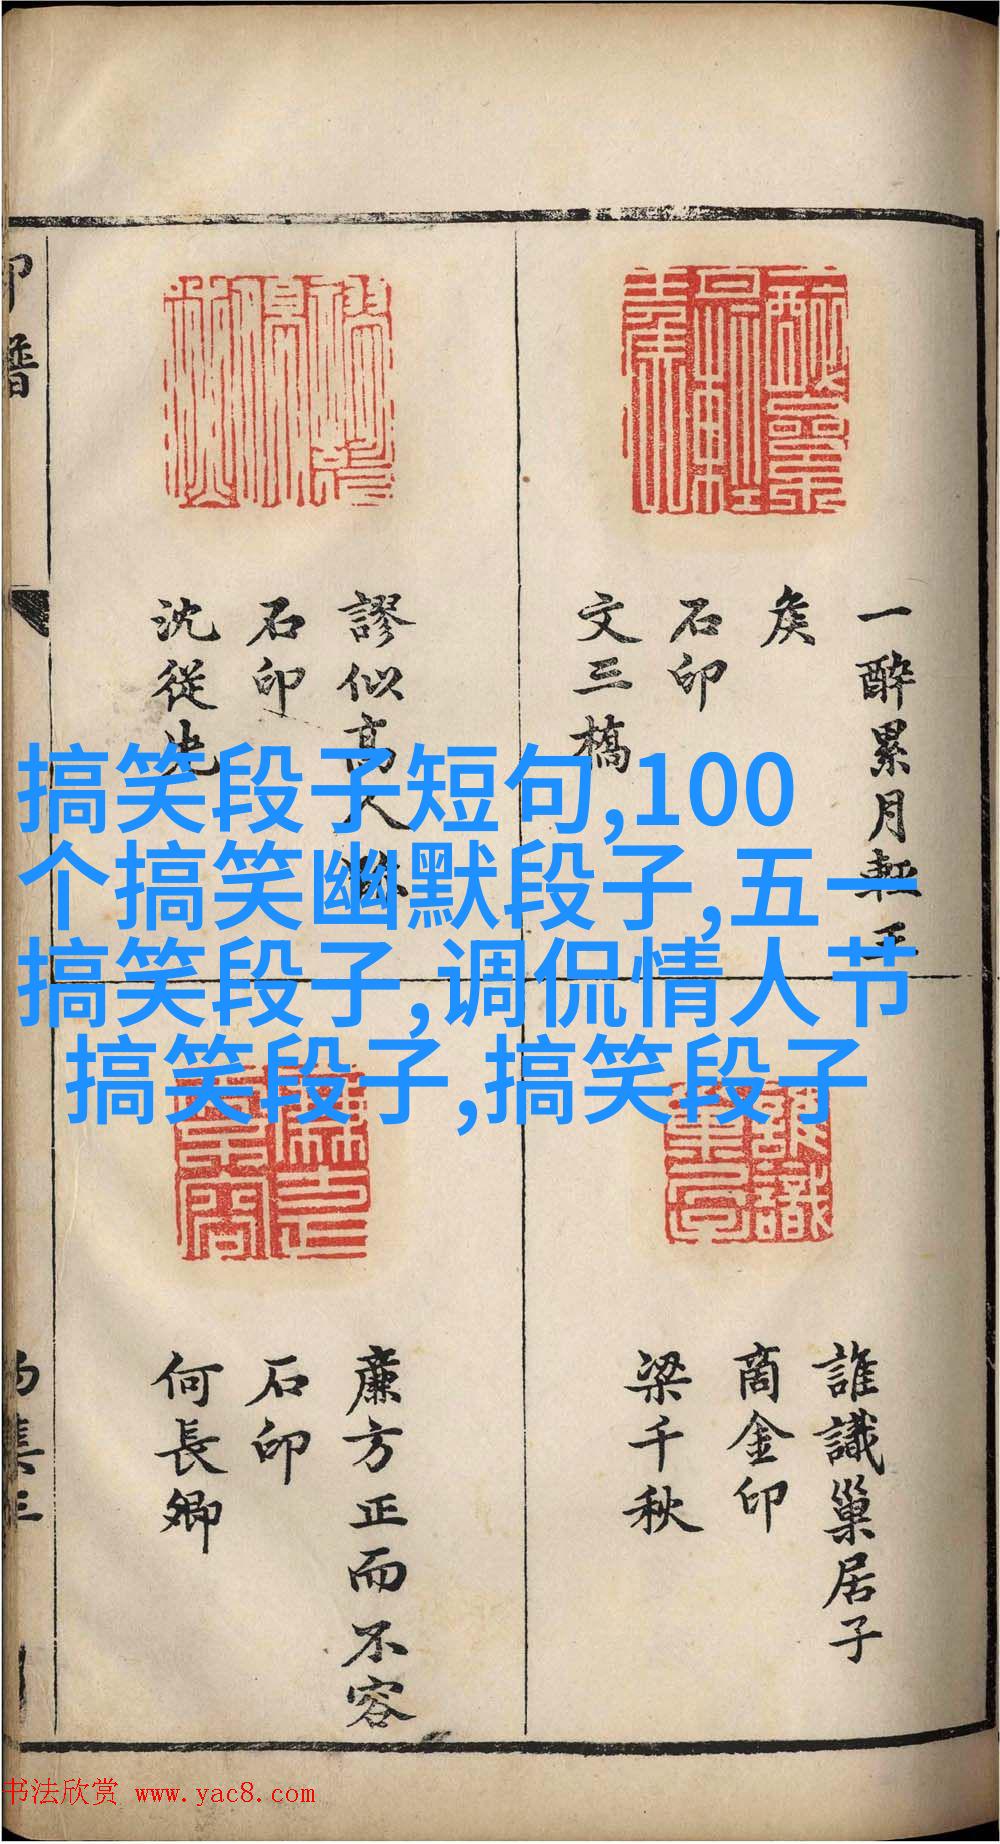 搞笑段子短句,100
个搞笑幽默段子,五一
搞笑段子,调侃情人节
搞笑段子,搞笑段子
一醉累月輕王
矦
石印
文三橋
謬似高人
石印
沈從先
誰識巢居子
商金印
梁千秋
廉方正而不容
石印
何長卿
印譜
书法欣赏 www.yac8.com